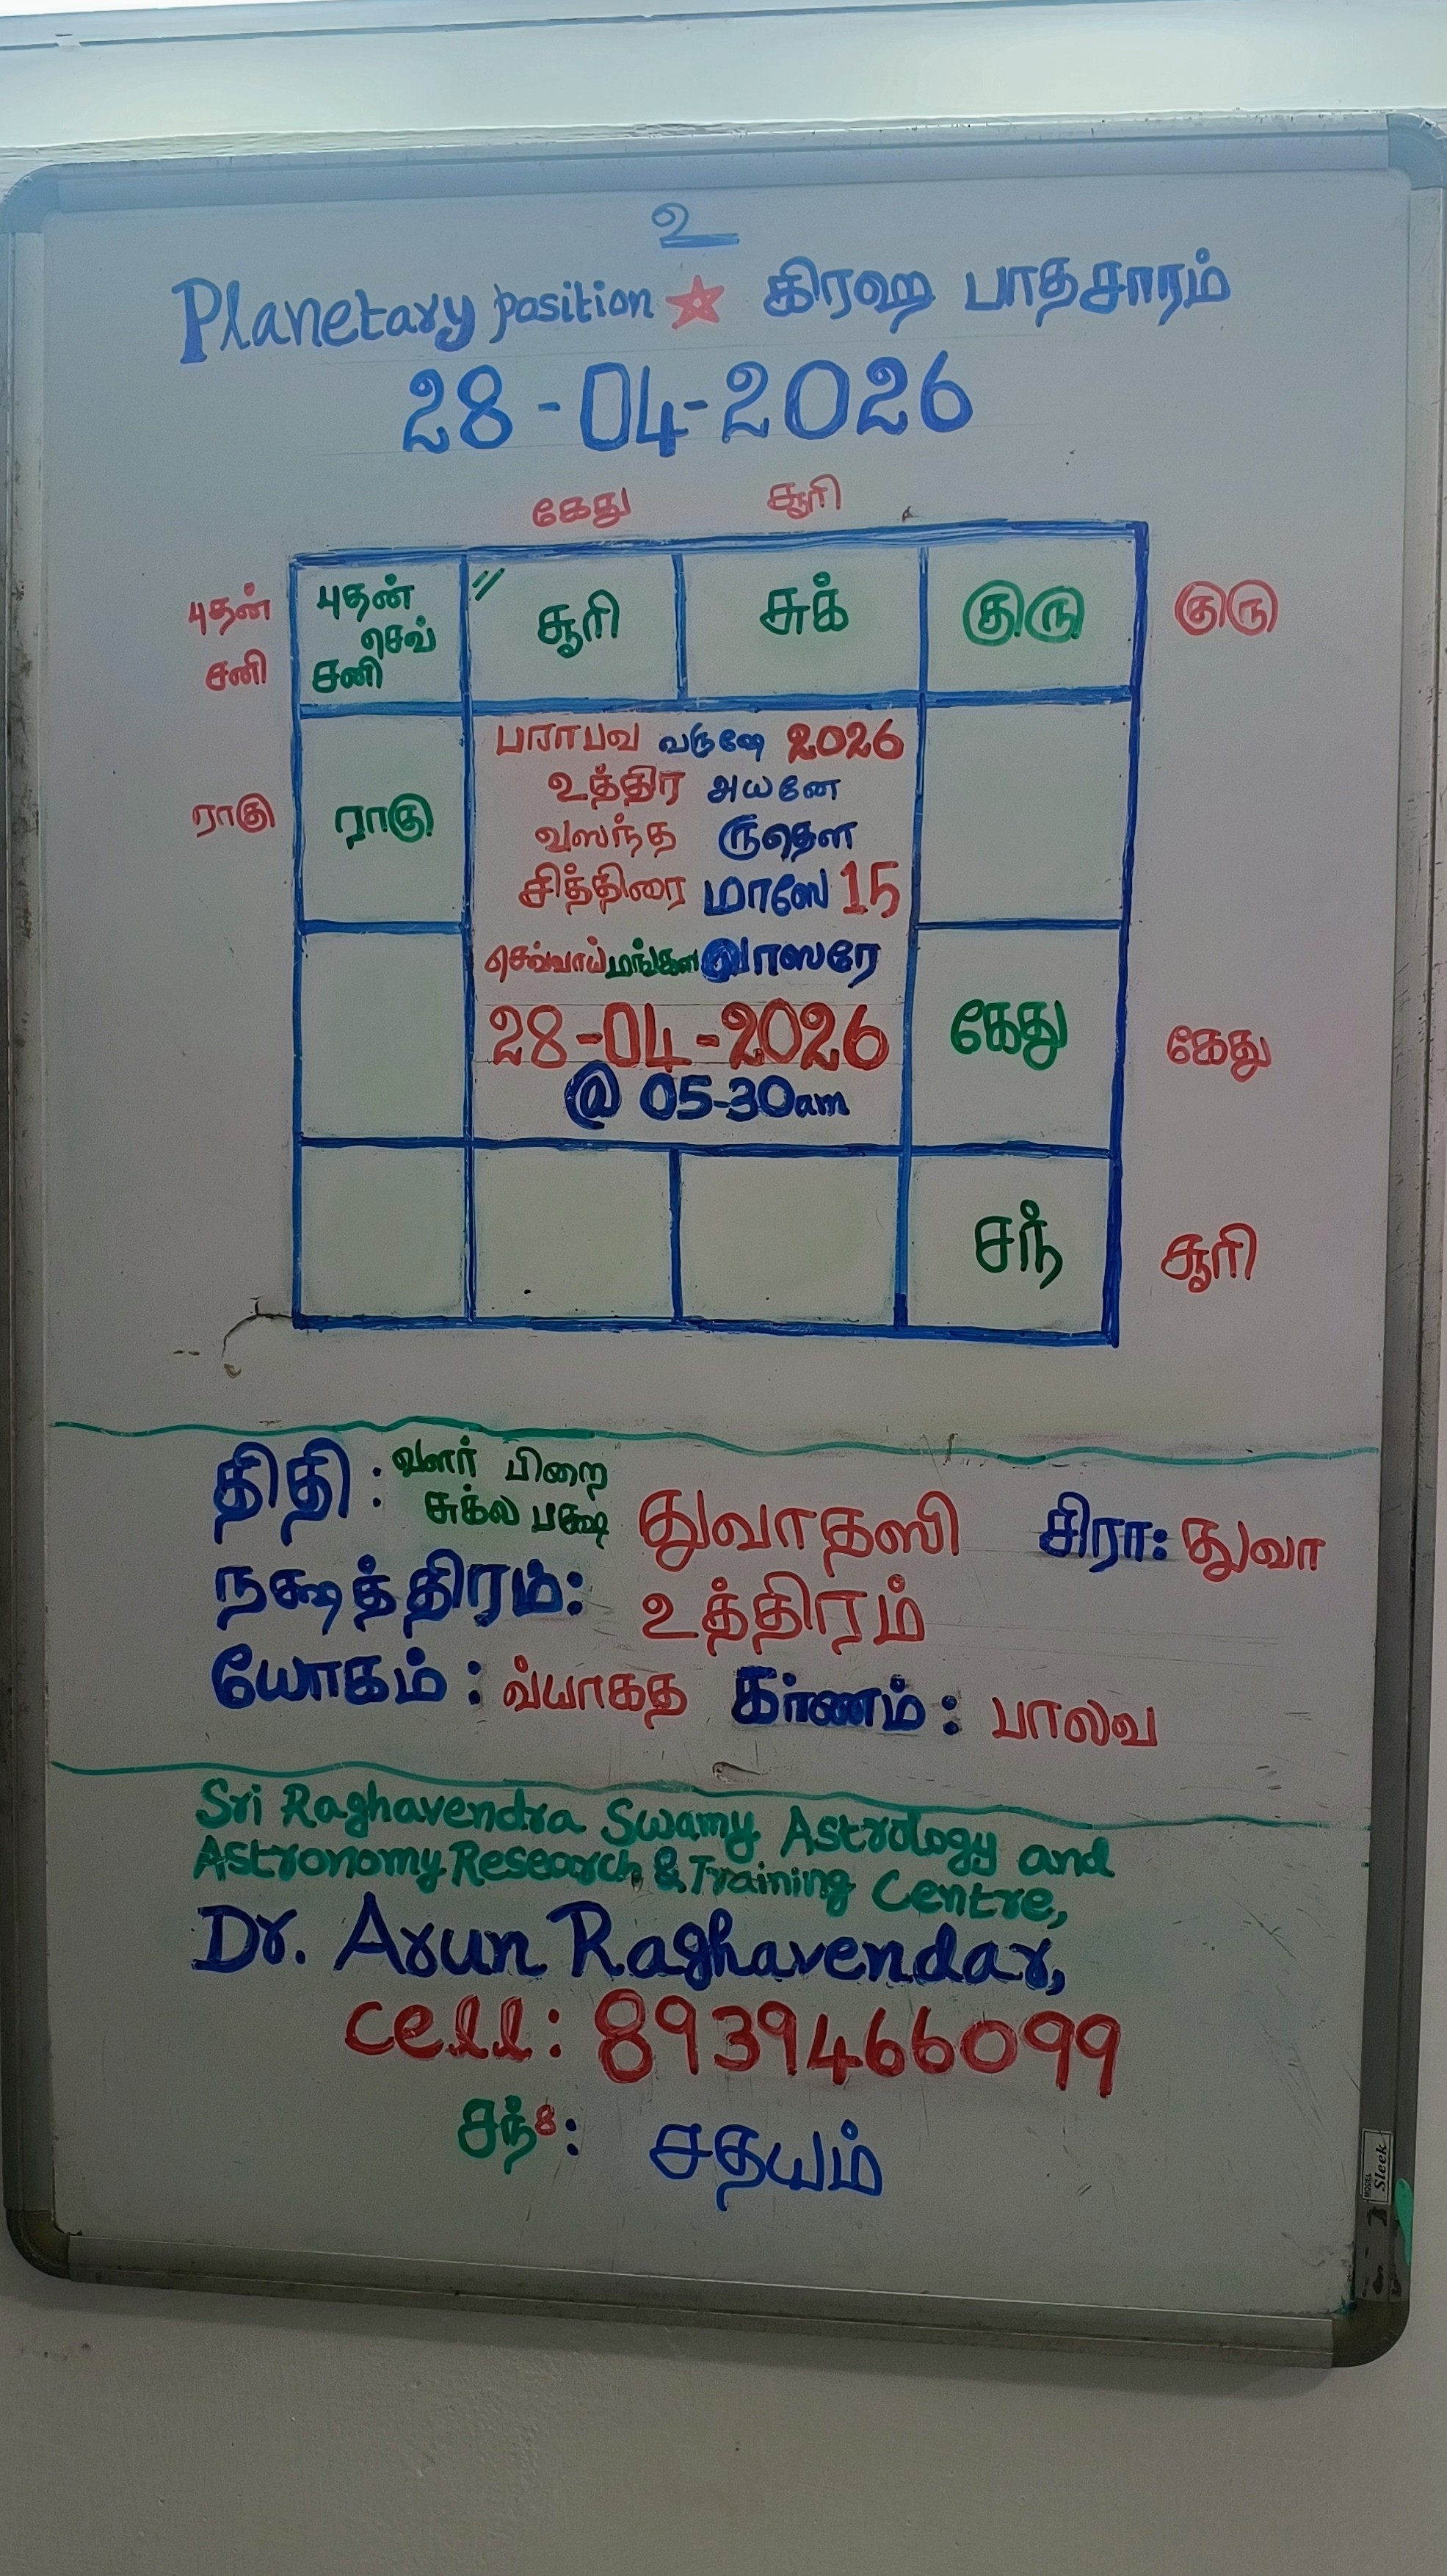 உ
Planetary position ☆ கிரஹ பாதசாரம்
28-04-2026
கேது சூரி
புதன் சனி புதன் செவ் சனி // சூரி சுக் குரு குரு
ராகு ராகு
பராபவ வருஷே 2026
உத்திர அயனே
வஸந்த ருதௌ
சித்திரை மாஸே 15
செவ்வாய் மங்கள வாஸரே
28-04-2026
@ 05-30am
கேது கேது
சந் சூரி
திதி : வளர் பிறை சுக்ல பக்ஷ துவாதஸி சிரா: துவா
நக்ஷத்திரம்: உத்திரம்
யோகம் : வ்யாகத கர்ணம் : பாலவ
Sri Raghavendra Swamy Astrology and
Astronomy Research & Training Centre,
Dr. Arun Raghavendar,
cell: 8939466099
சந்8: சதயம்
MODEL Sleek